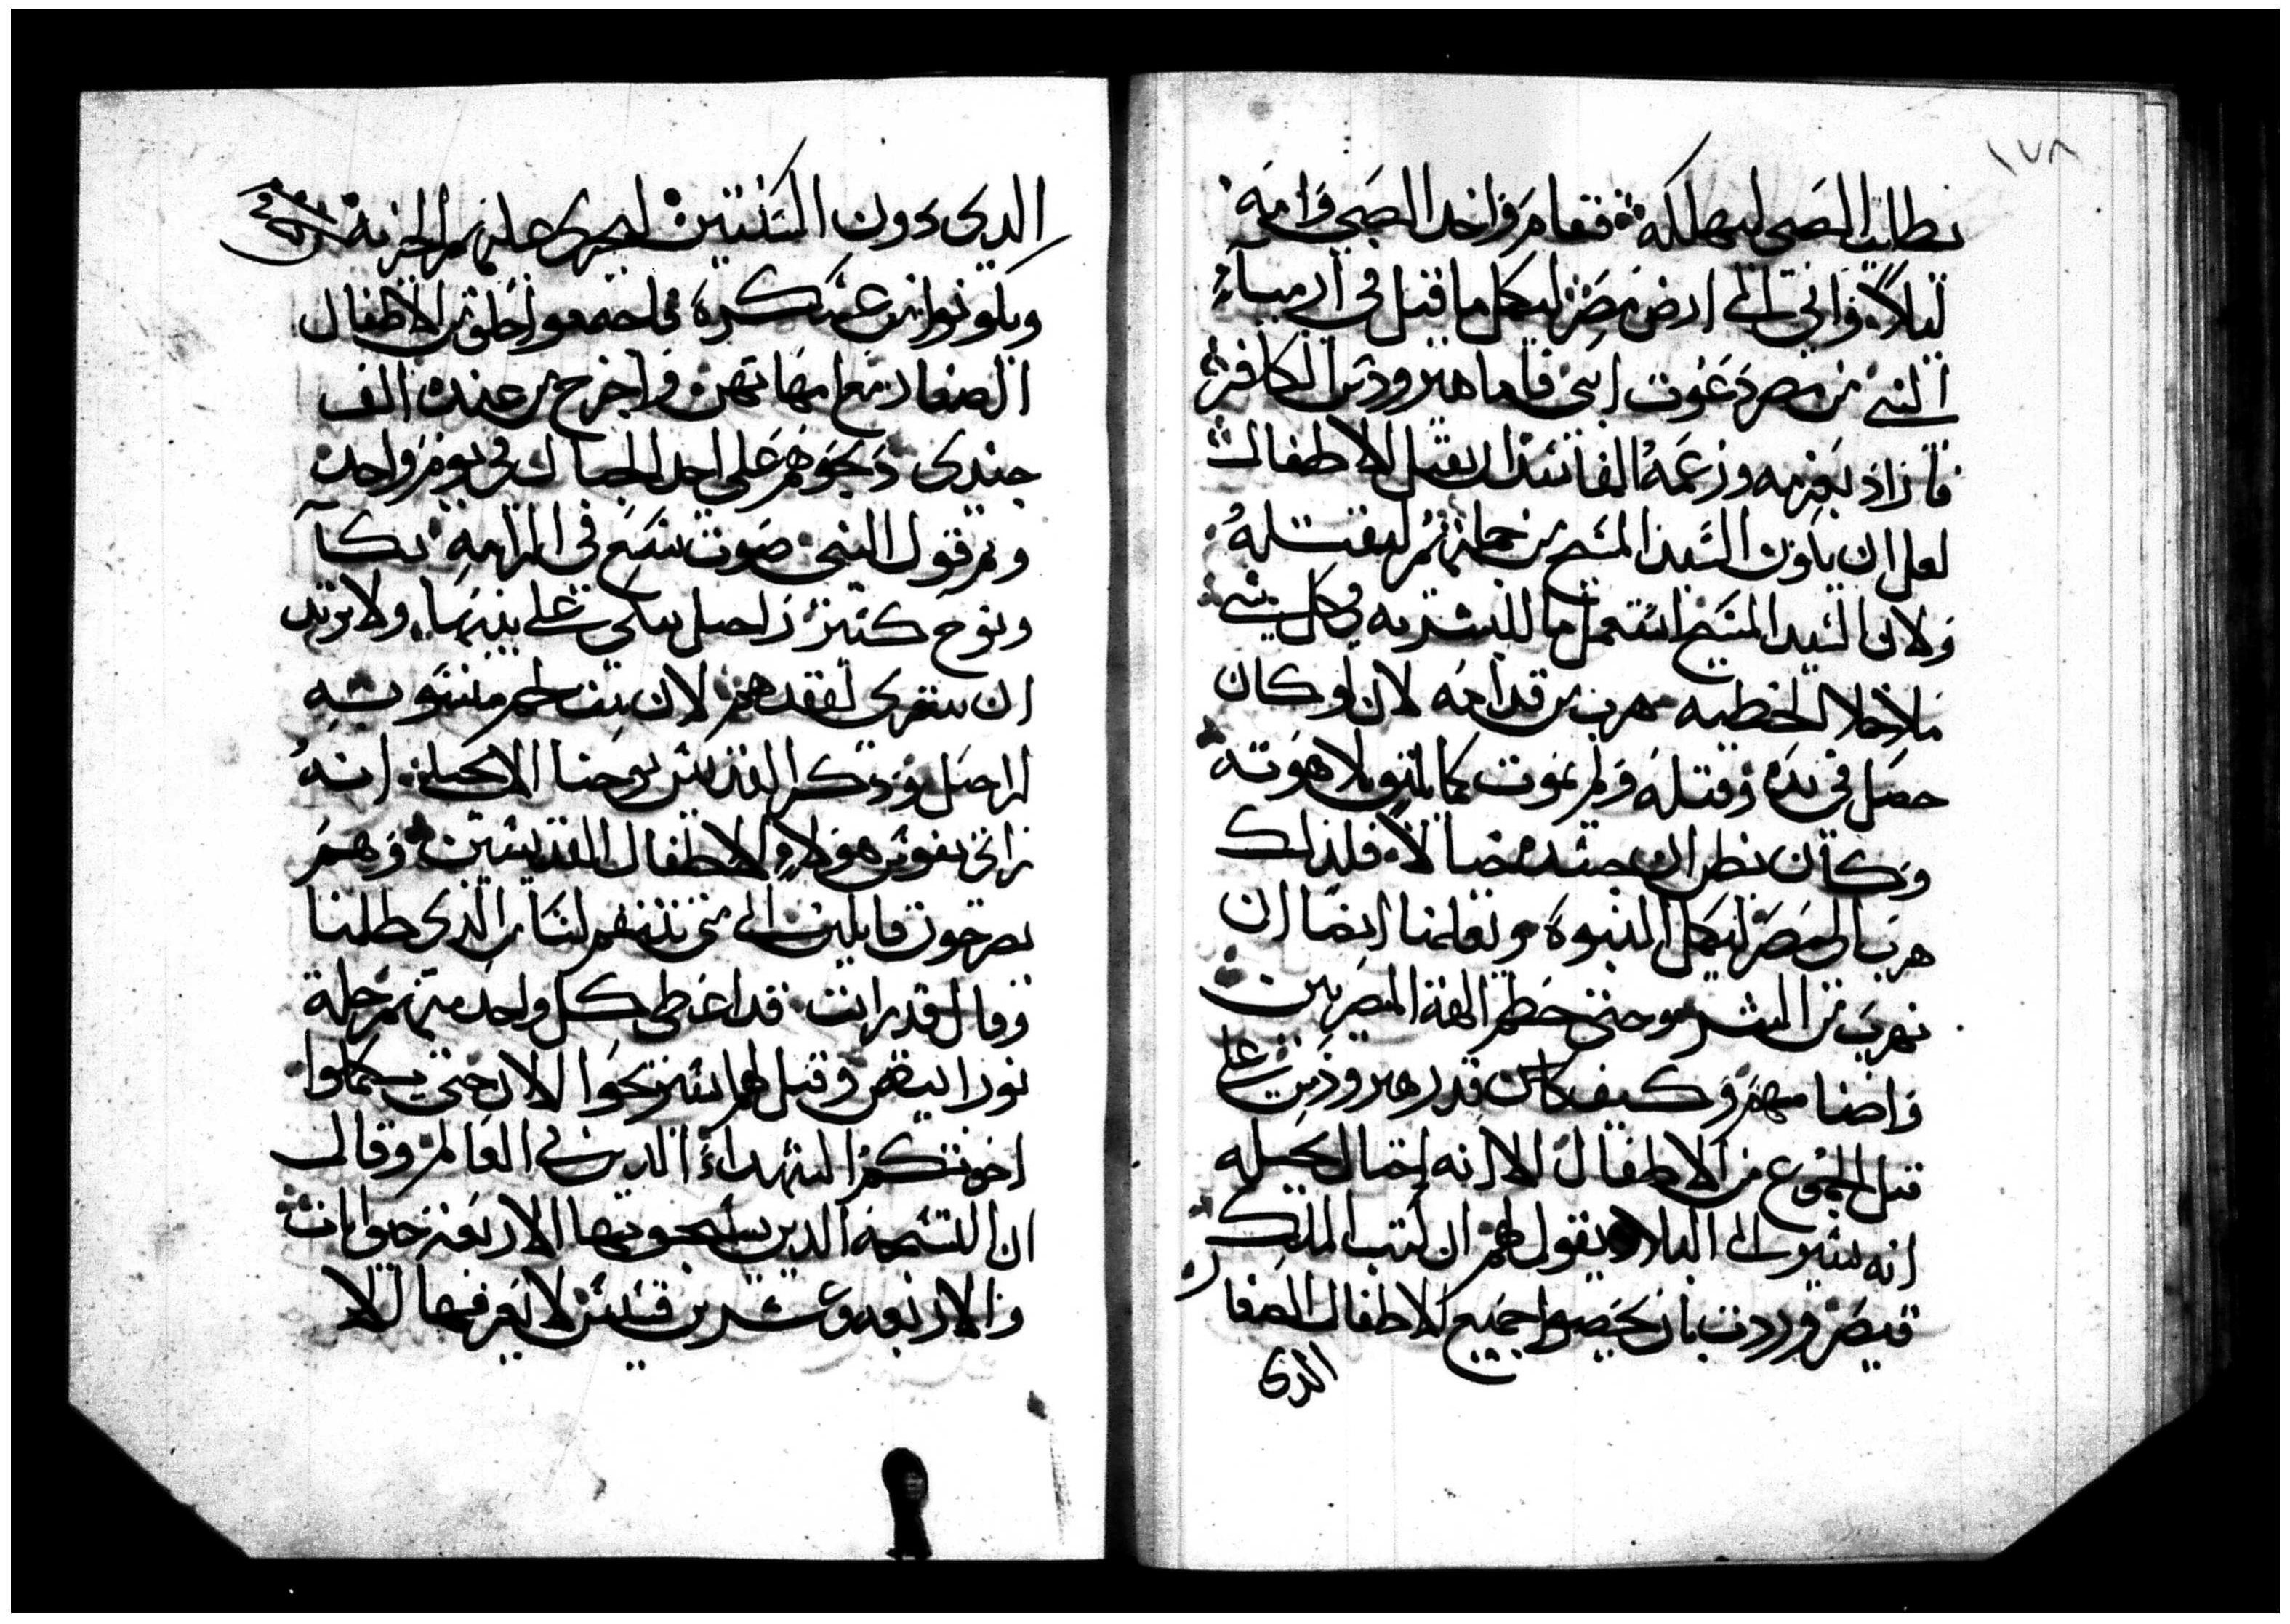 ١٧٨
يطلب الصبى ليهلكه فقام واخد الصبى وامه
ليلا واتى الى ارض مصر ليكمل ما قيل فى ارمياء
النبى من مصر دعوت ابنى فاما هيرودس الكافر
فازاد بعزمه وزعمه الفاسد ان يقتل الاطفال
لعل ان ياون السيد المسيح من جملتهم ليقتله
ولان السيد المسيح استعمل ما للبشريه وكل شى
ماخلا الخطيه هرب من قدامه لان لو كان
حصل فى يده وقتله ولم يموت كما لاهوته
وكان يظن ان جسده خيالا فلذلك
هرب الى مصر ليكمل النبوة ويعلمنا ايضا ان
نهرب من الشر وحتى حطم الهة المصريين
وايضا مهم وكيف كان قدر هيرودس على
قتل الجموع من الاطفال الا انه احتال بحيله
انه سير الى البلاد يقول لهم ان كتب الملك
قيصر وردت بان يحصوا جميع الاطفال الصغار
الدى
الدى دون السنتين ليجرى عليهم الجزية
ويكونوا من عسكره فاجتمعوا خلق من الاطفال
الصغار مع امهاتهن واخرج من عنده الف
جندى دبحوهم على احد الجبال فى يوم واحد
وتم قول النبى صوت سمع فى الرامه بكآ
ونوح كثير راحيل تبكى على بنيها ولا تريد
ان تتعزى لفقدهم لان
لراحيل ودكر القديس يوحنا الانجيلى انه
راى نفوس هولاء الاطفال القديسين وهم
يصرخون قايلين الى متى تنتقم لنا من الدى ظلمنا
وقال قد رايت قد اعطى كل واحد منهم حلة
نور ابيض وقيل لهم استريحوا الان حتى يكملوا
اخوتكم الشهداء الدين فى العالم وقال
ان التسبحة الدين يسبحو بها الاربعة حيوانات
والاربعه وعشرين قسيس لا يعرفها الا